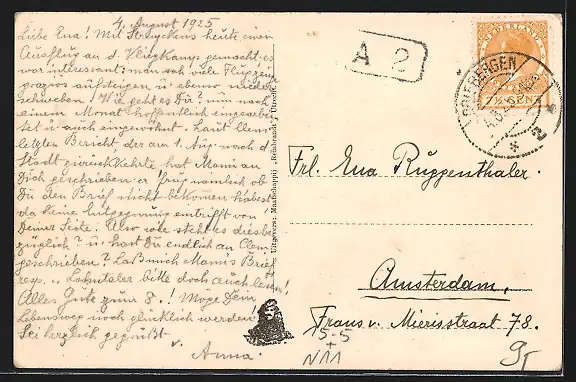 4. August 1925
Liebe Ena! Mit Struyckens heute einen
Ausflug an d. Vliegkamp gemacht. es
war interessant; man sah viele Flugzeuge
aufsteigen u. ebenso nieder
schweben. Wie geht es Dir? nun nach
einem Monat hoffentlich eingearbei
tet u. auch eingewohnt. Laut
letzten Bericht der am 1. Aug. nach d.
Stadt zurückkehrte hat Mami an
Dich geschrieben. er frug nämlich ob
Du den Brief nicht bekommen habest
da keine eintrifft von
Deiner Seite. Also wie steht es diesbe
züglich? u. hast Du endlich an Clem.
geschrieben? Laß mich Mami's Brief
resp. bitte doch auch lesen!
Alles Gute zum 8.! Möge Dein
Lebensweg noch glücklich werden!
Sei herzlich gegrüßt
v. Anna.
Uitgevers: Maatschappij „Rembrandt" Utrecht.
A 2
NEDERLAND
7½ CENT
Frl. Ena Ruggenthaler.
Amsterdam.
Frans v. Mierisstraat 78.
5-5
+
N11